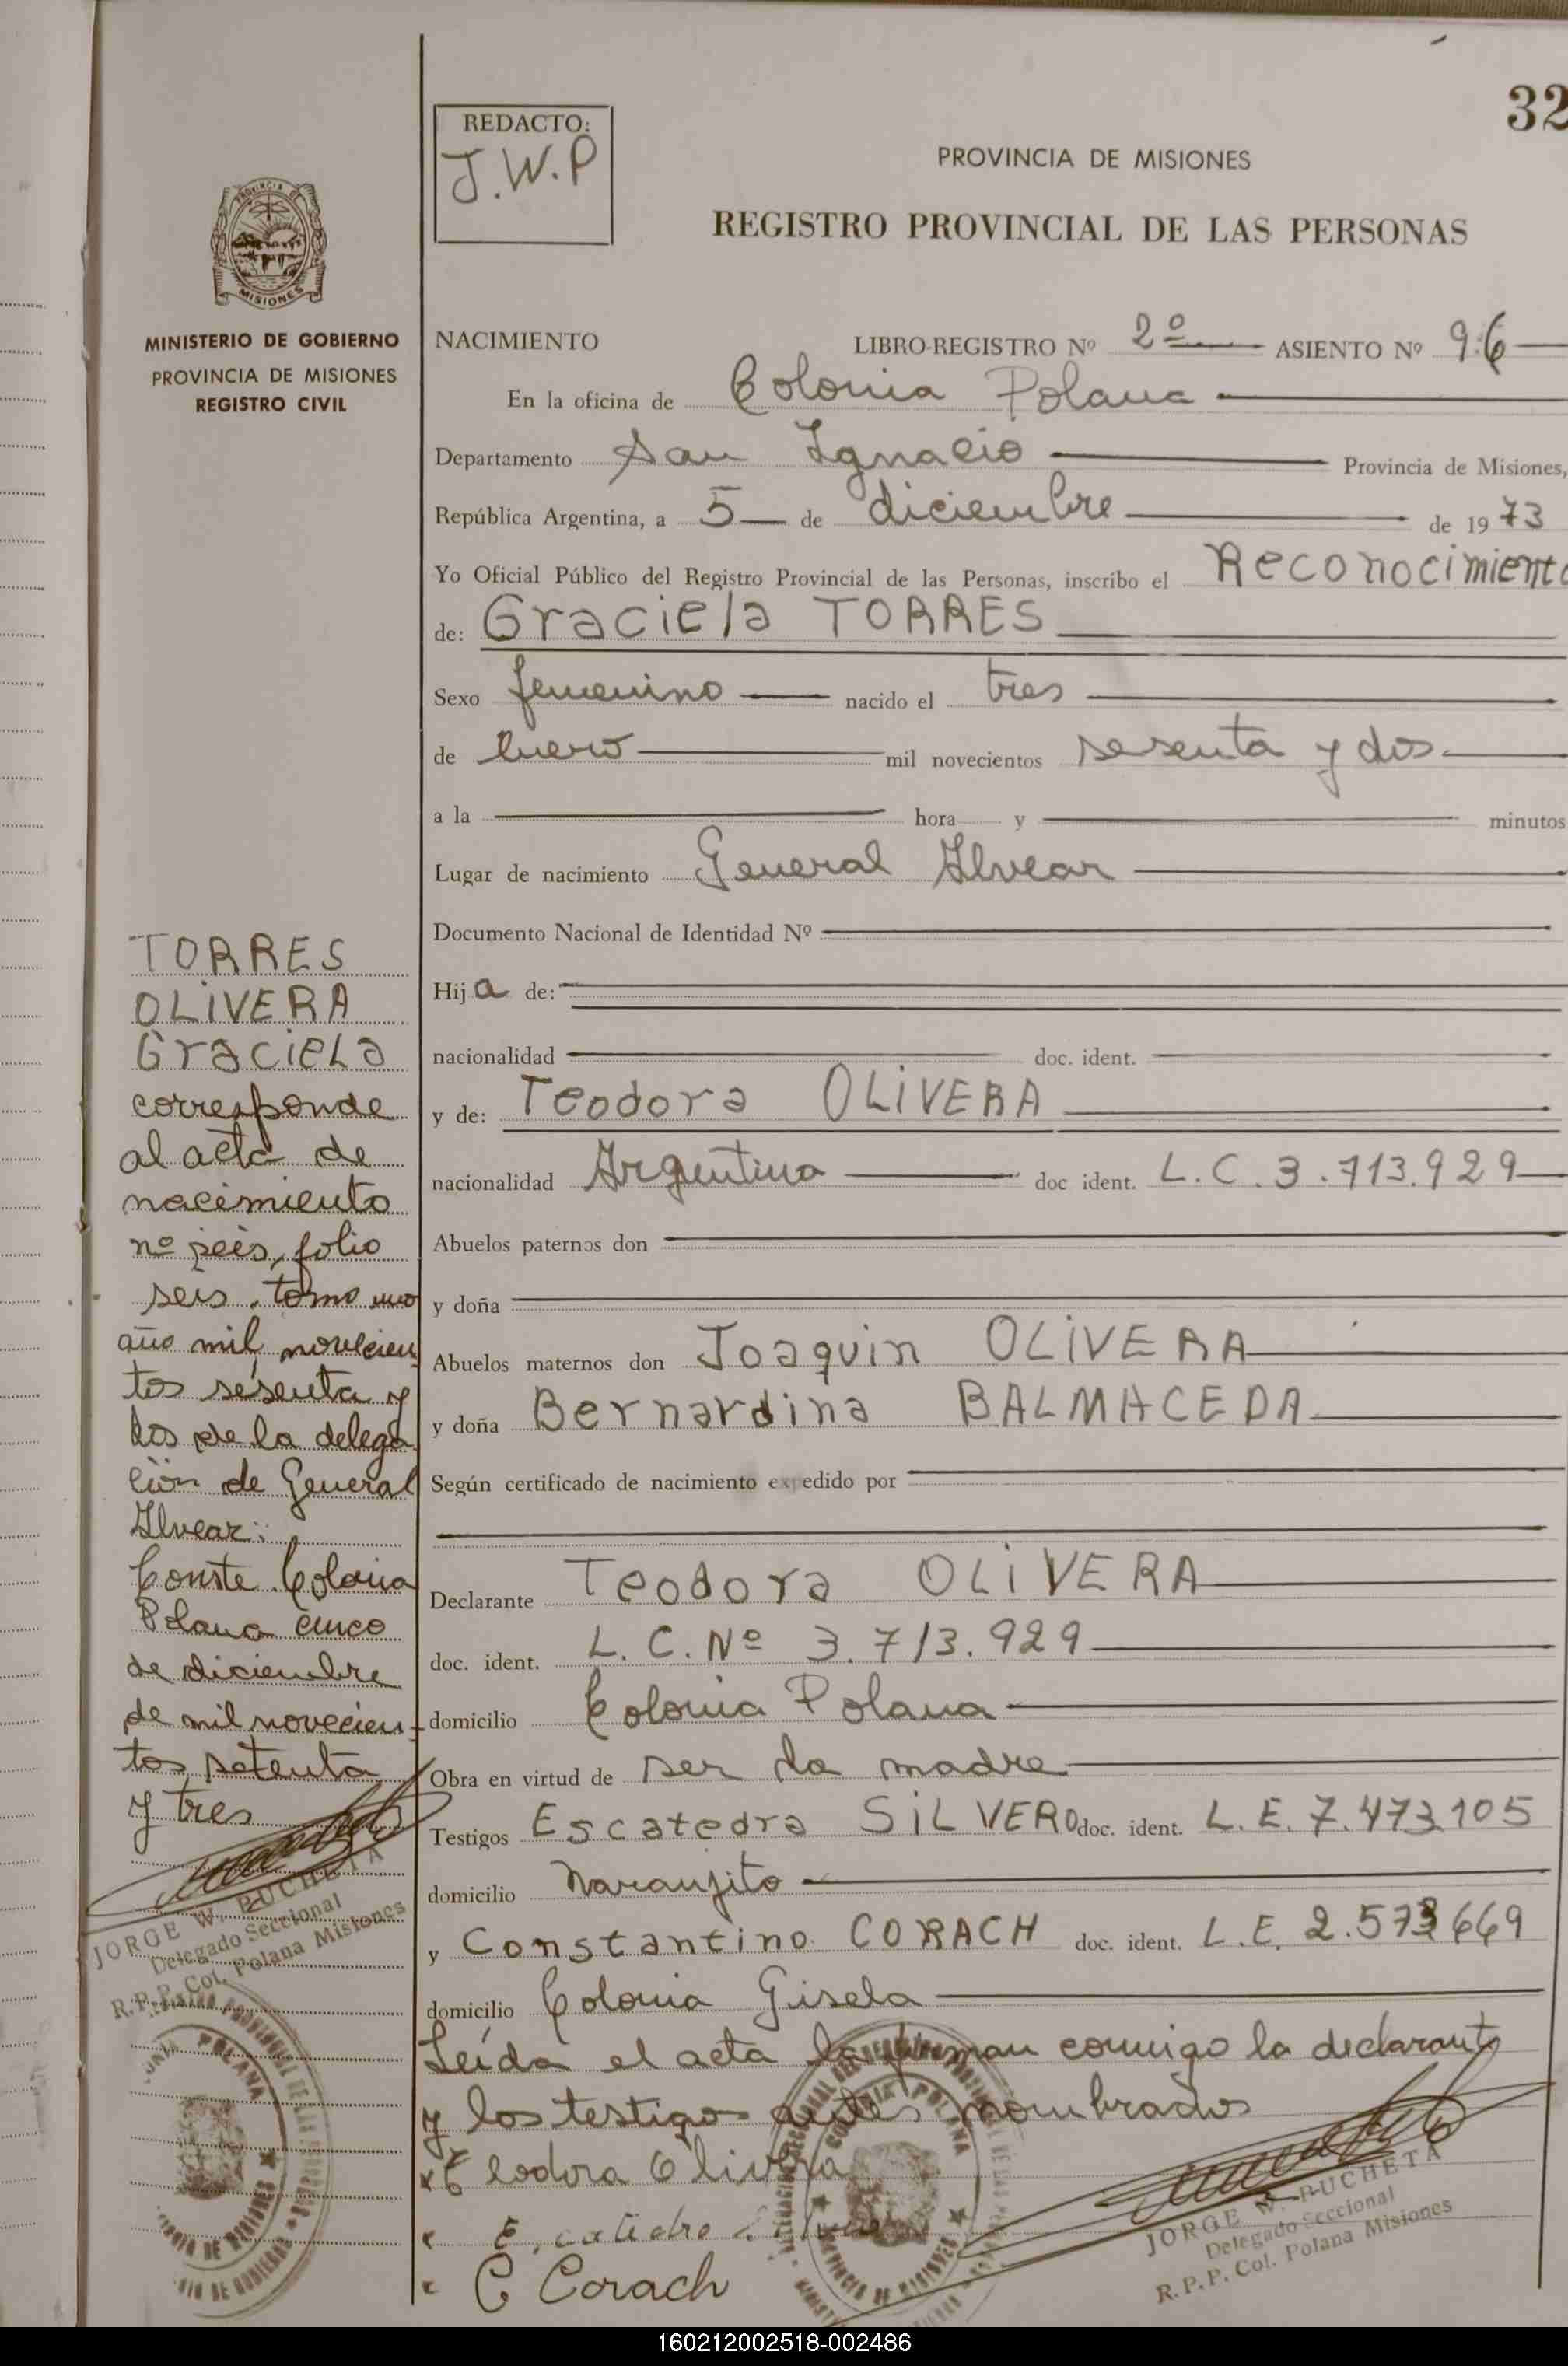 32
REDACTO:
J.W.P
PROVINCIA DE MISIONES
REGISTRO PROVINCIAL DE LAS PERSONAS
MISIONES
MINISTERIO DE GOBIERNO
PROVINCIA DE MISIONES
REGISTRO CIVIL
NACIMIENTO LIBRO-REGISTRO Nº 2º ASIENTO Nº 96
En la oficina de Colonia Polana
Departamento San Ignacio Provincia de Misiones,
República Argentina, a 5 de diciembre de 1973
Yo Oficial Público del Registro Provincial de las Personas, inscribo el Reconocimiento
de: Graciela TORRES
Sexo femenino nacido el tres
de Enero mil novecientos sesenta y dos
a la hora y minutos
Lugar de nacimiento General Alvear
Documento Nacional de Identidad Nº
Hija de:
nacionalidad doc. ident.
y de: Teodora OLIVERA
nacionalidad Argentina doc ident. L.C. 3.713.929
Abuelos paternos don
y doña
Abuelos maternos don Joaquin OLIVERA
y doña Bernardina BALMACEDA
Según certificado de nacimiento expedido por
Declarante Teodora OLIVERA
doc. ident. L.C. Nº 3.713.929
domicilio Colonia Polana
Obra en virtud de ser la madre
Testigos Escatedra SILVERO doc. ident. L.E. 7.473105
domicilio Naranjito
y Constantino CORACH doc. ident. L.E. 2.573669
domicilio Colonia Gisela
Leída el acta la firman conmigo la declarante
y los testigos antes nombrados
Teodora Olivera
C Corach
JORGE W. PUCHETA
Delegado Seccional
R.P.P. Col. Polana Misiones
TORRES
OLIVERA
Graciela
corresponde
al acta de
nacimiento
nº seis, folio
seis, tomo uno
año mil novecien
tos sesenta y
dos de la delega
ción de General
Alvear.
Conste. Colonia
Polana cinco
de diciembre
de mil novecien-
tos setenta
y tres
JORGE W. PUCHETA
Delegado Seccional
R.P.P. Col. Polana Misiones
160212002518-002486